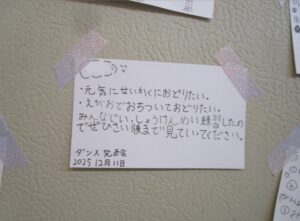 ・元気にせいかくにおどりたい。
・えがおでおちついておどりたい。
みんなでいっしょうけんめい練習したの
でぜひさい後まで見ていてください。
ダンス発表会
2025 12月11日